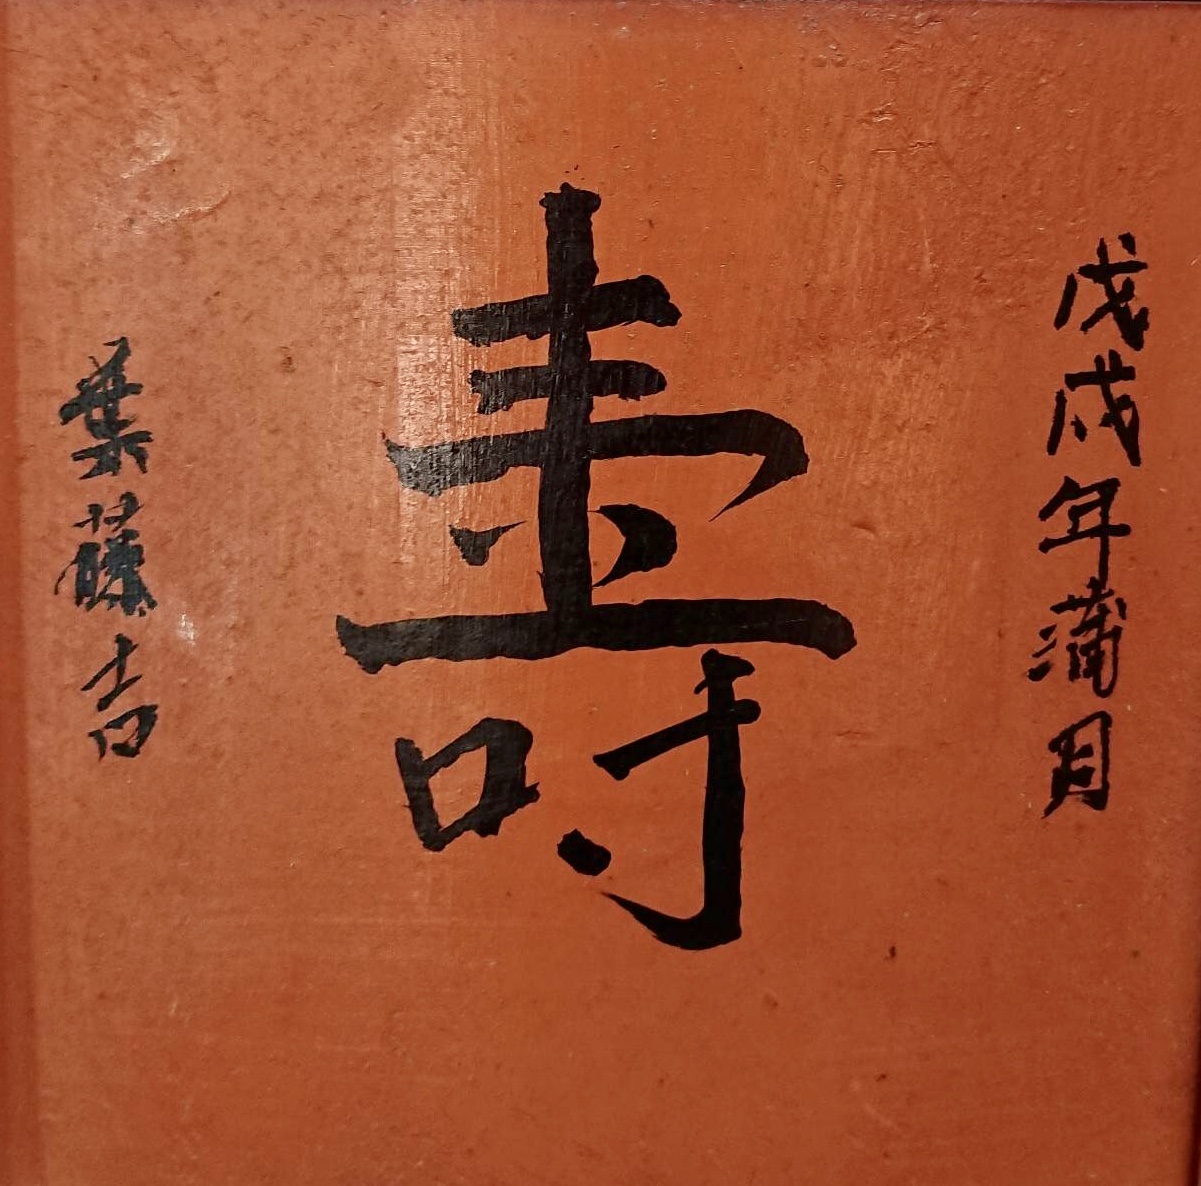 戊戌年蒲月
壽
葉藤吉